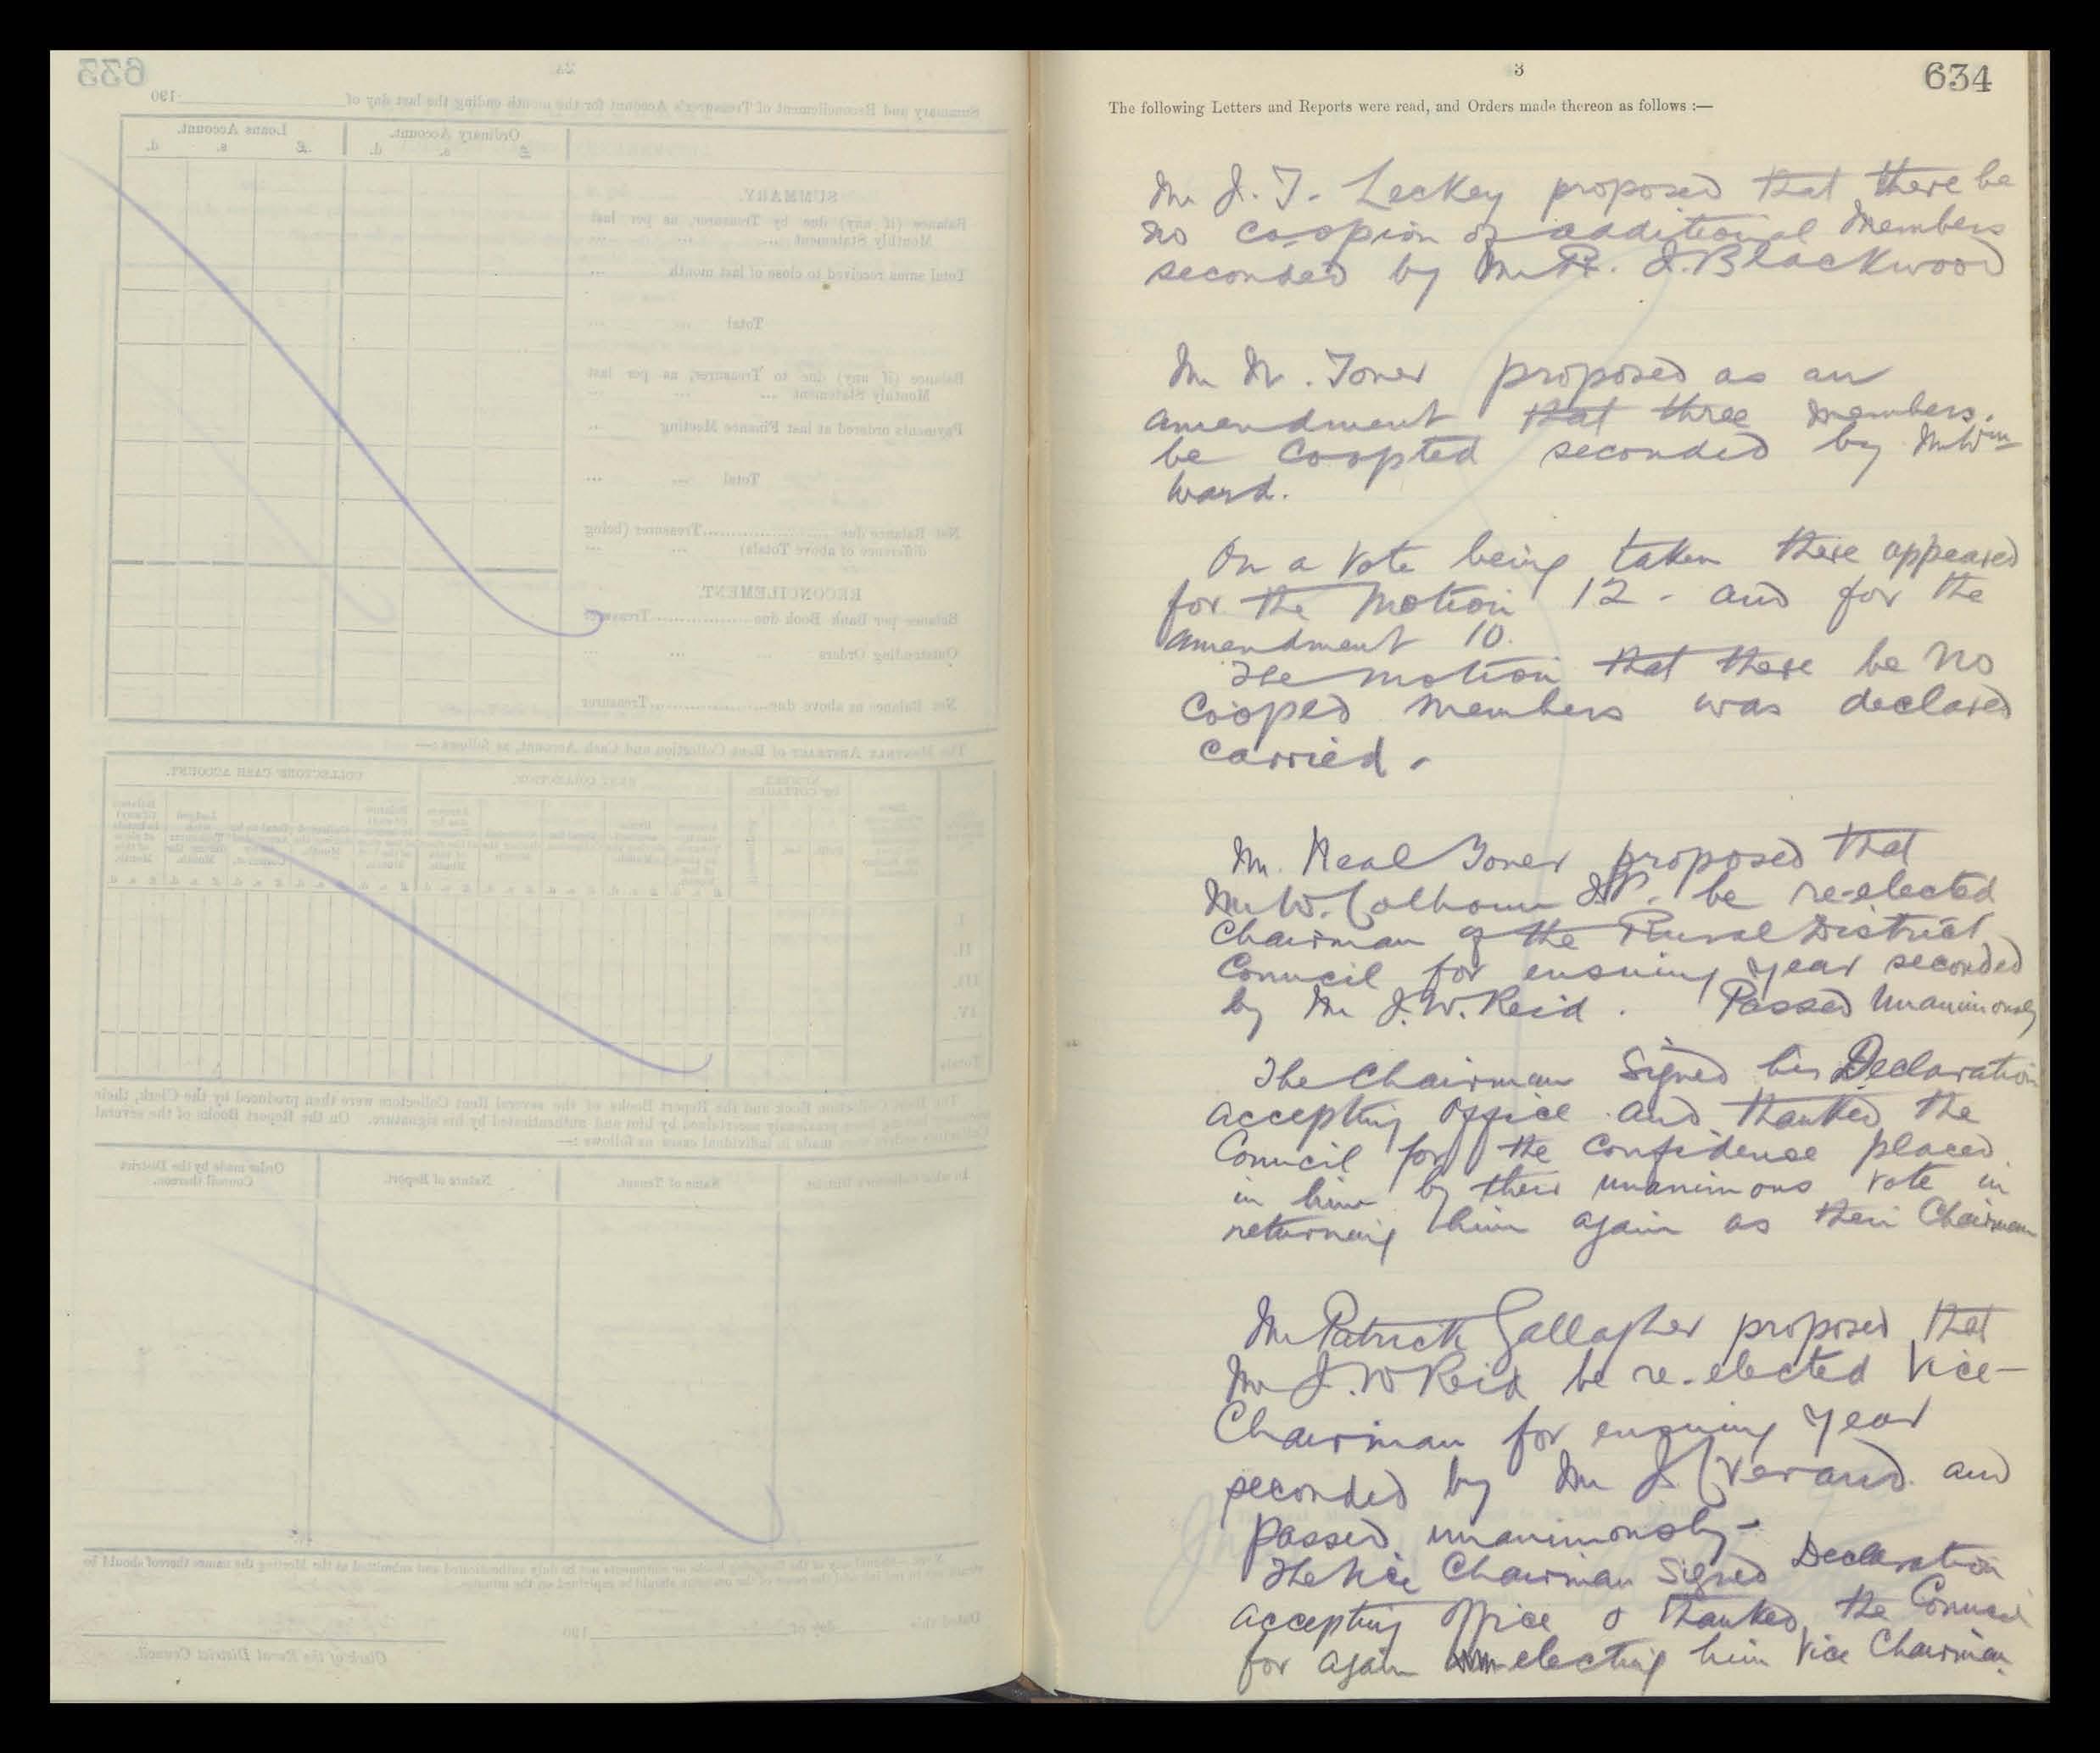 3
634
The following Letters and Reports were read, and Orders made thereon as follows :—
Mr J. T. Leckey proposed that there be
no coopion of additional Members
seconded by Mr R. J. Blackwood
Mr N. Toner proposed as an
amendment that three members.
be Coopted seconded by Mr Wm
Ward.
On a Vote being taken there appeared
for the Motion 12 - and for the
Amendment 10.
The motion that there be no
Cooped members was declared
Carried.
Mr. Neal Toner proposed that
Mr W. Colhoun J.P. be re-elected
Chairman of the Rural District
Council for ensuing year seconded
by Mr J.W. Reid. Passed Unanimously
The Chairman Signed his Declaration
accepting Office and thanked the
Council for the confidence placed
in him by their unanimous vote in
returning him again as their Chairman
Mr Patrick Gallagher proposed that
Mr J. W Reid be re-elected Vice-
Chairman for ensuing year
seconded by Mr J. and
passed unanimously-
The Vice Chairman Signed Declaration
accepting Office & thanked the Council
for again electing him Vice Chairman
633
Summary and Reconcilement of Treasurer's Account for the month ending the last day of 190
Ordinary Account.
Loans Account.
£ s. d. £ s. d.
SUMMARY.
Balance (if any) due by Treasurer, as per last
Monthly Statement
Total sums received to close of last month
Total
Balance (if any) due to Treasurer, as per last
Monthly Statement
Payments ordered at last Finance Meeting
Total
Net Balance due Treasurer (being
difference of above Totals)
RECONCILEMENT.
Balance per Bank Book due Treasurer
Outstanding Orders
Net Balance as above due Treasurer
The Monthly Abstract of Rent Collection and Cash Account, as follows :—
RENT COLLECTION.
COLLECTORS' CASH ACCOUNT.
I.
II.
III.
IV.
Totals
Name of Tenant.
Nature of Report.
Order made by the District
Council thereon.
Dated this day of 190
Clerk of the Rural District Council.